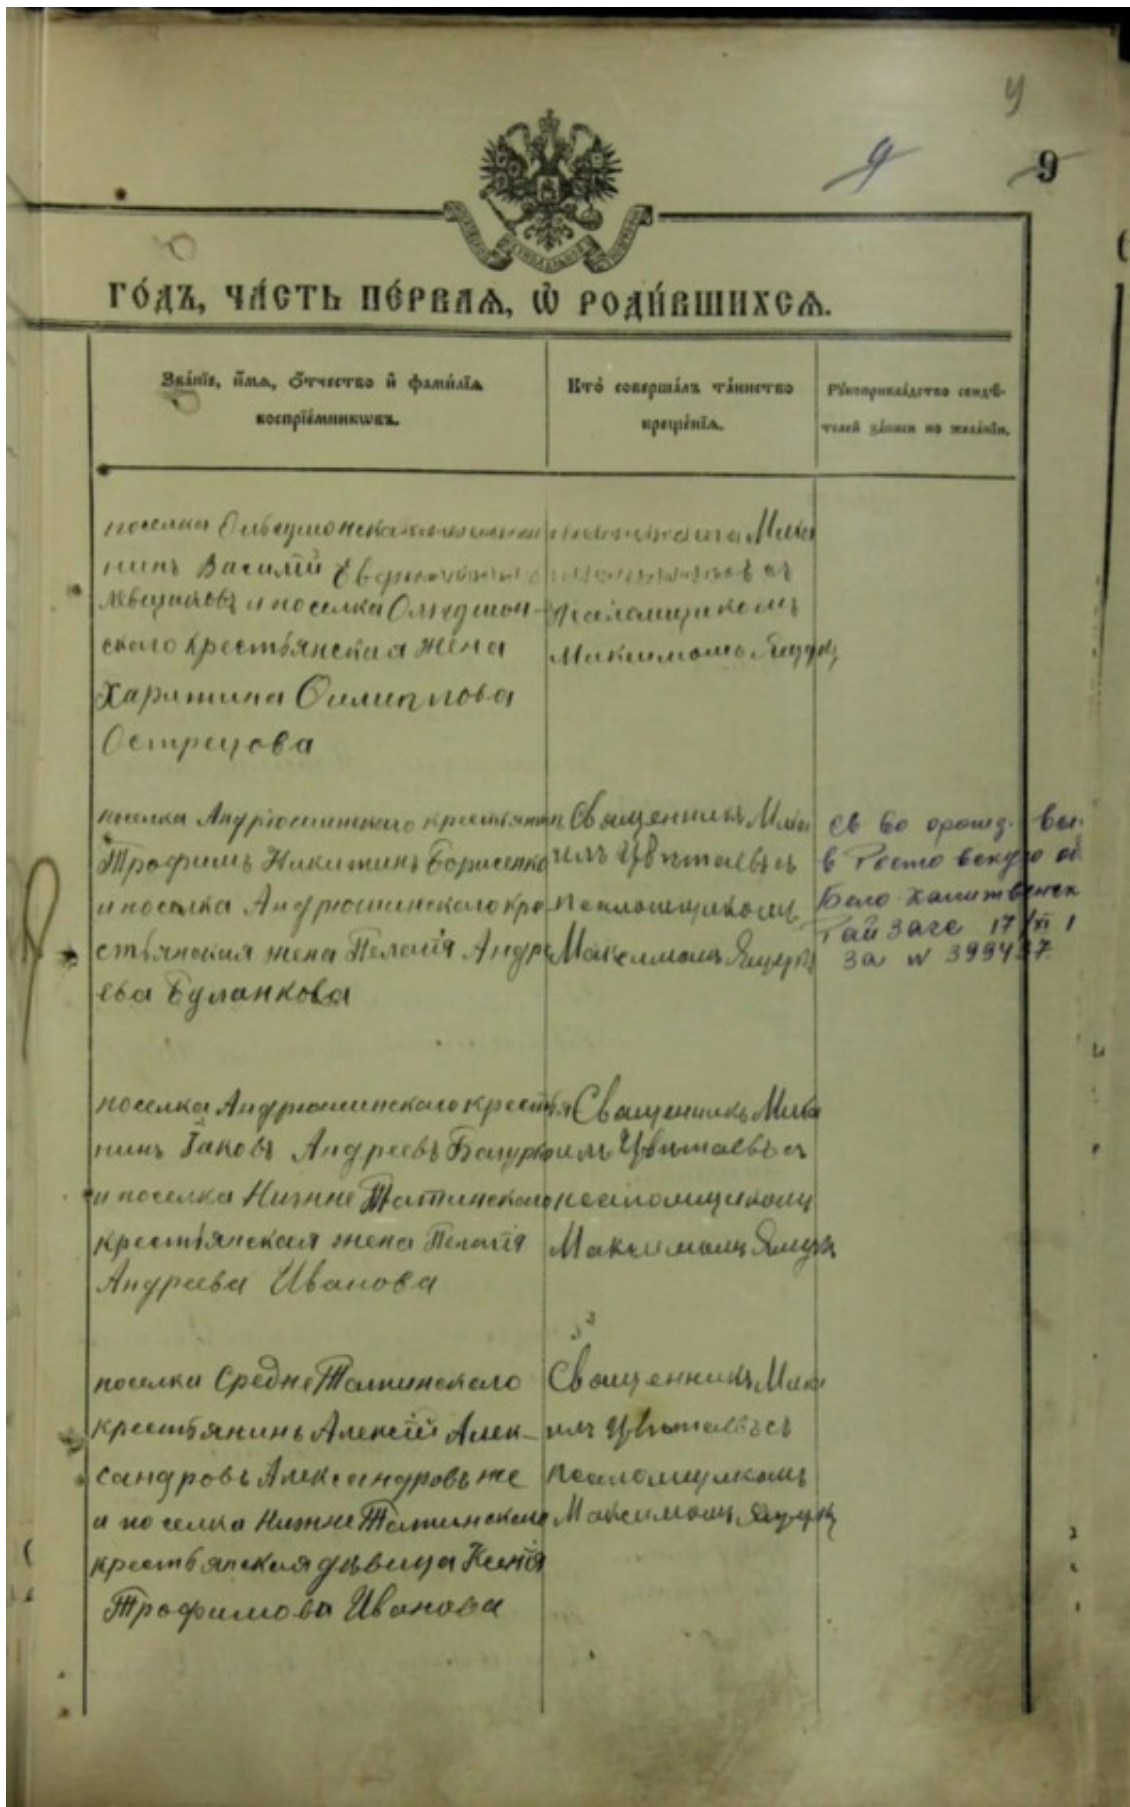 9
9
ГО́ДЪ, ЧА́СТЬ ПЕ́РВАѦ, Ѡ РОДИ́ВШИХСѦ.
Зва́нїе, и́мѧ, ѻ́тчество и҆ фами́лїѧ
воспрїе́мникѡвъ.
Кто̀ соверша́лъ та́инство
креще́нїѧ.
Рꙋкоприкла́дство свидѣ́-
телей за́писи по жела́нїю.
поселка
нинъ Василій
и поселка
скаго крестьянская жена
Харитина Филиппова
Острецова
псаломщикомъ
Максимомъ Ящукъ
поселка Андрюшинскаго крестьянинъ
Трофимъ Никитинъ Борисенко
и поселка Андрюшинскаго кре-
стьянская жена Пелагія Андре
ева Буланкова
Священникъ Миха
илъ Цвѣтаевъ съ
псаломщикомъ
Максимомъ Ящукъ
св во о рожд. выс.
в Ростовскую об
Бело Калитвенск
Рай Загс 17
за N 399437
поселка Андрюшинскаго крестья
нинъ Іаковъ Андреевъ
и поселка Нижне Таминскаго
крестьянская жена Пелагія
Андреева Иванова
Священникъ Миха
илъ Цвѣтаевъ съ
псаломщикомъ
Максимомъ Ящукъ
поселка Средне Таминскаго
крестьянинъ Алексій Алек-
сандровъ Александровъ же
и поселка Нижне Таминскаго
крестьянская дѣвица Ксенія
Трофимова Иванова
Священникъ Миха
илъ Цвѣтаевъ съ
псаломщикомъ
Максимомъ Ящукъ